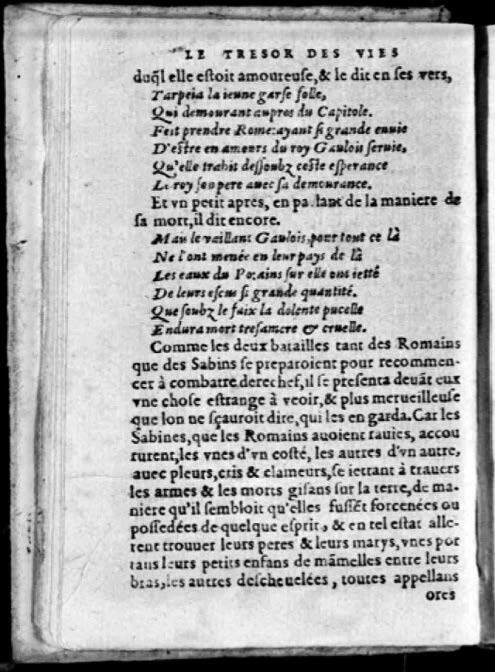 LE TRESOR DES VIES
duq̃l elle estoit amoureuse, & le dit en ses vers,
Tarpeia la ieune garse folle,
Qui demourant aupres du Capitole.
Feit prendre Rome: ayant si grande enuie
D'estre en amours du roy Gaulois seruie,
Qu'elle trahit dessoubz ceste esperance
Le roy son pere auec sa demourance.
Et vn petit apres, en parlant de la maniere de
sa mort, il dit encore.
Mais le vaillant Gaulois, pour tout ce là
Ne l'ont menée en leur pays de là
Les eaux du Po: ains sur elle ont ietté
De leurs escus si grande quantité.
Que soubz le faix la dolente pucelle
Endura mort tresamere & cruelle.
Comme les deux batailles tant des Romains
que des Sabins se preparoient pour recommen-
cer à combatre derechef, il se presenta deuãt eux
vne chose estrange à veoir, & plus merueilleuse
que lon ne sçauroit dire, qui les en garda. Car les
Sabines, que les Romains auoient rauies, accou
rurent, les vnes d'vn costé, les autres d'vn autre,
auec pleurs, cris & clameurs, se iettant à trauers
les armes & les morts gisans sur la terre, de ma-
niere qu'il sembloit qu'elles fussẽt forcenées ou
possedées de quelque esprit, & en tel estat alle-
rent trouuer leurs peres & leurs marys, vnes por
tans leurs petits enfans de mãmelles entre leurs
bras, les autres descheuelées, toutes appellans
ores